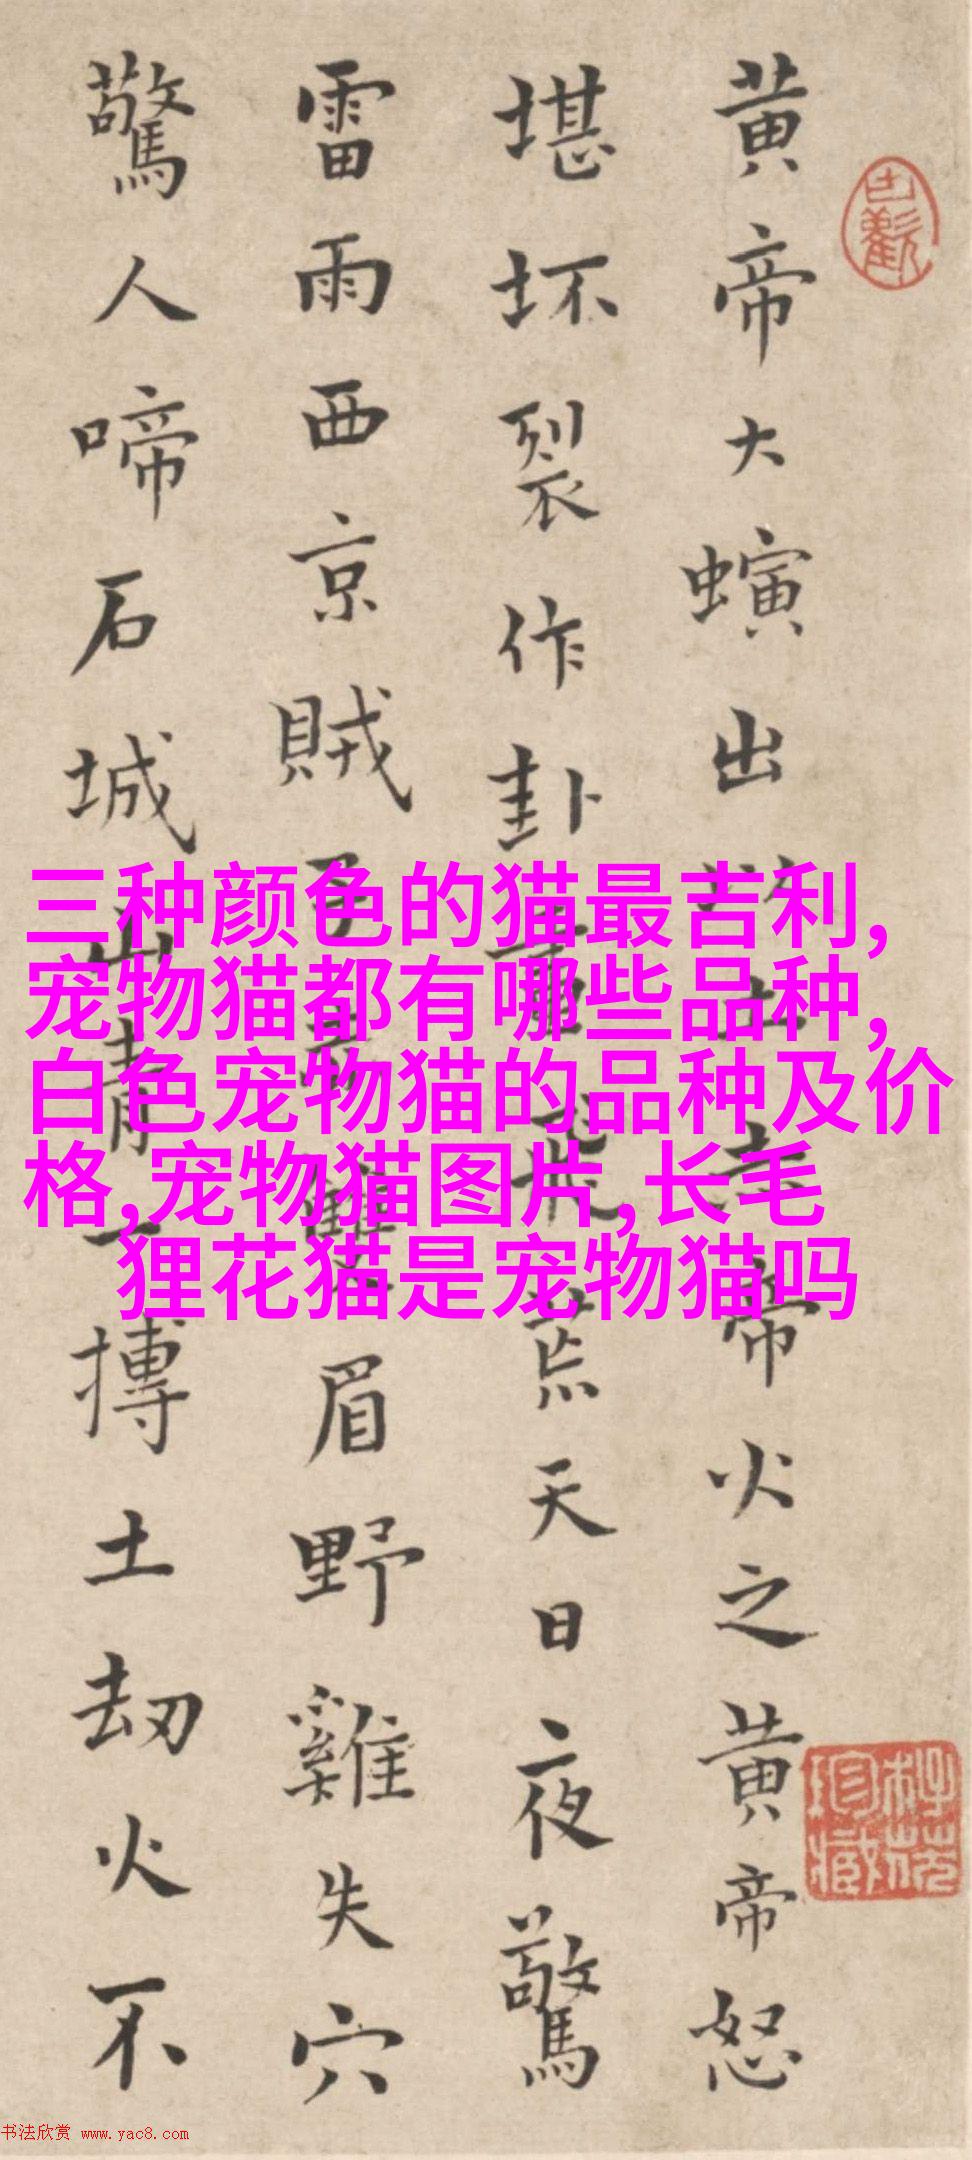 黃帝大螾出土帝火之黃帝怒
堪坏裂作卦飛荒天日夜驚
雷雨西京賊子眉野雞失穴
驚人啼石城山青一摶土劫火不
三种颜色的猫最吉利,
宠物猫都有哪些品种,
白色宠物猫的品种及价
格,宠物猫图片,长毛
狸花猫是宠物猫吗
书法欣赏 www.yac8.com